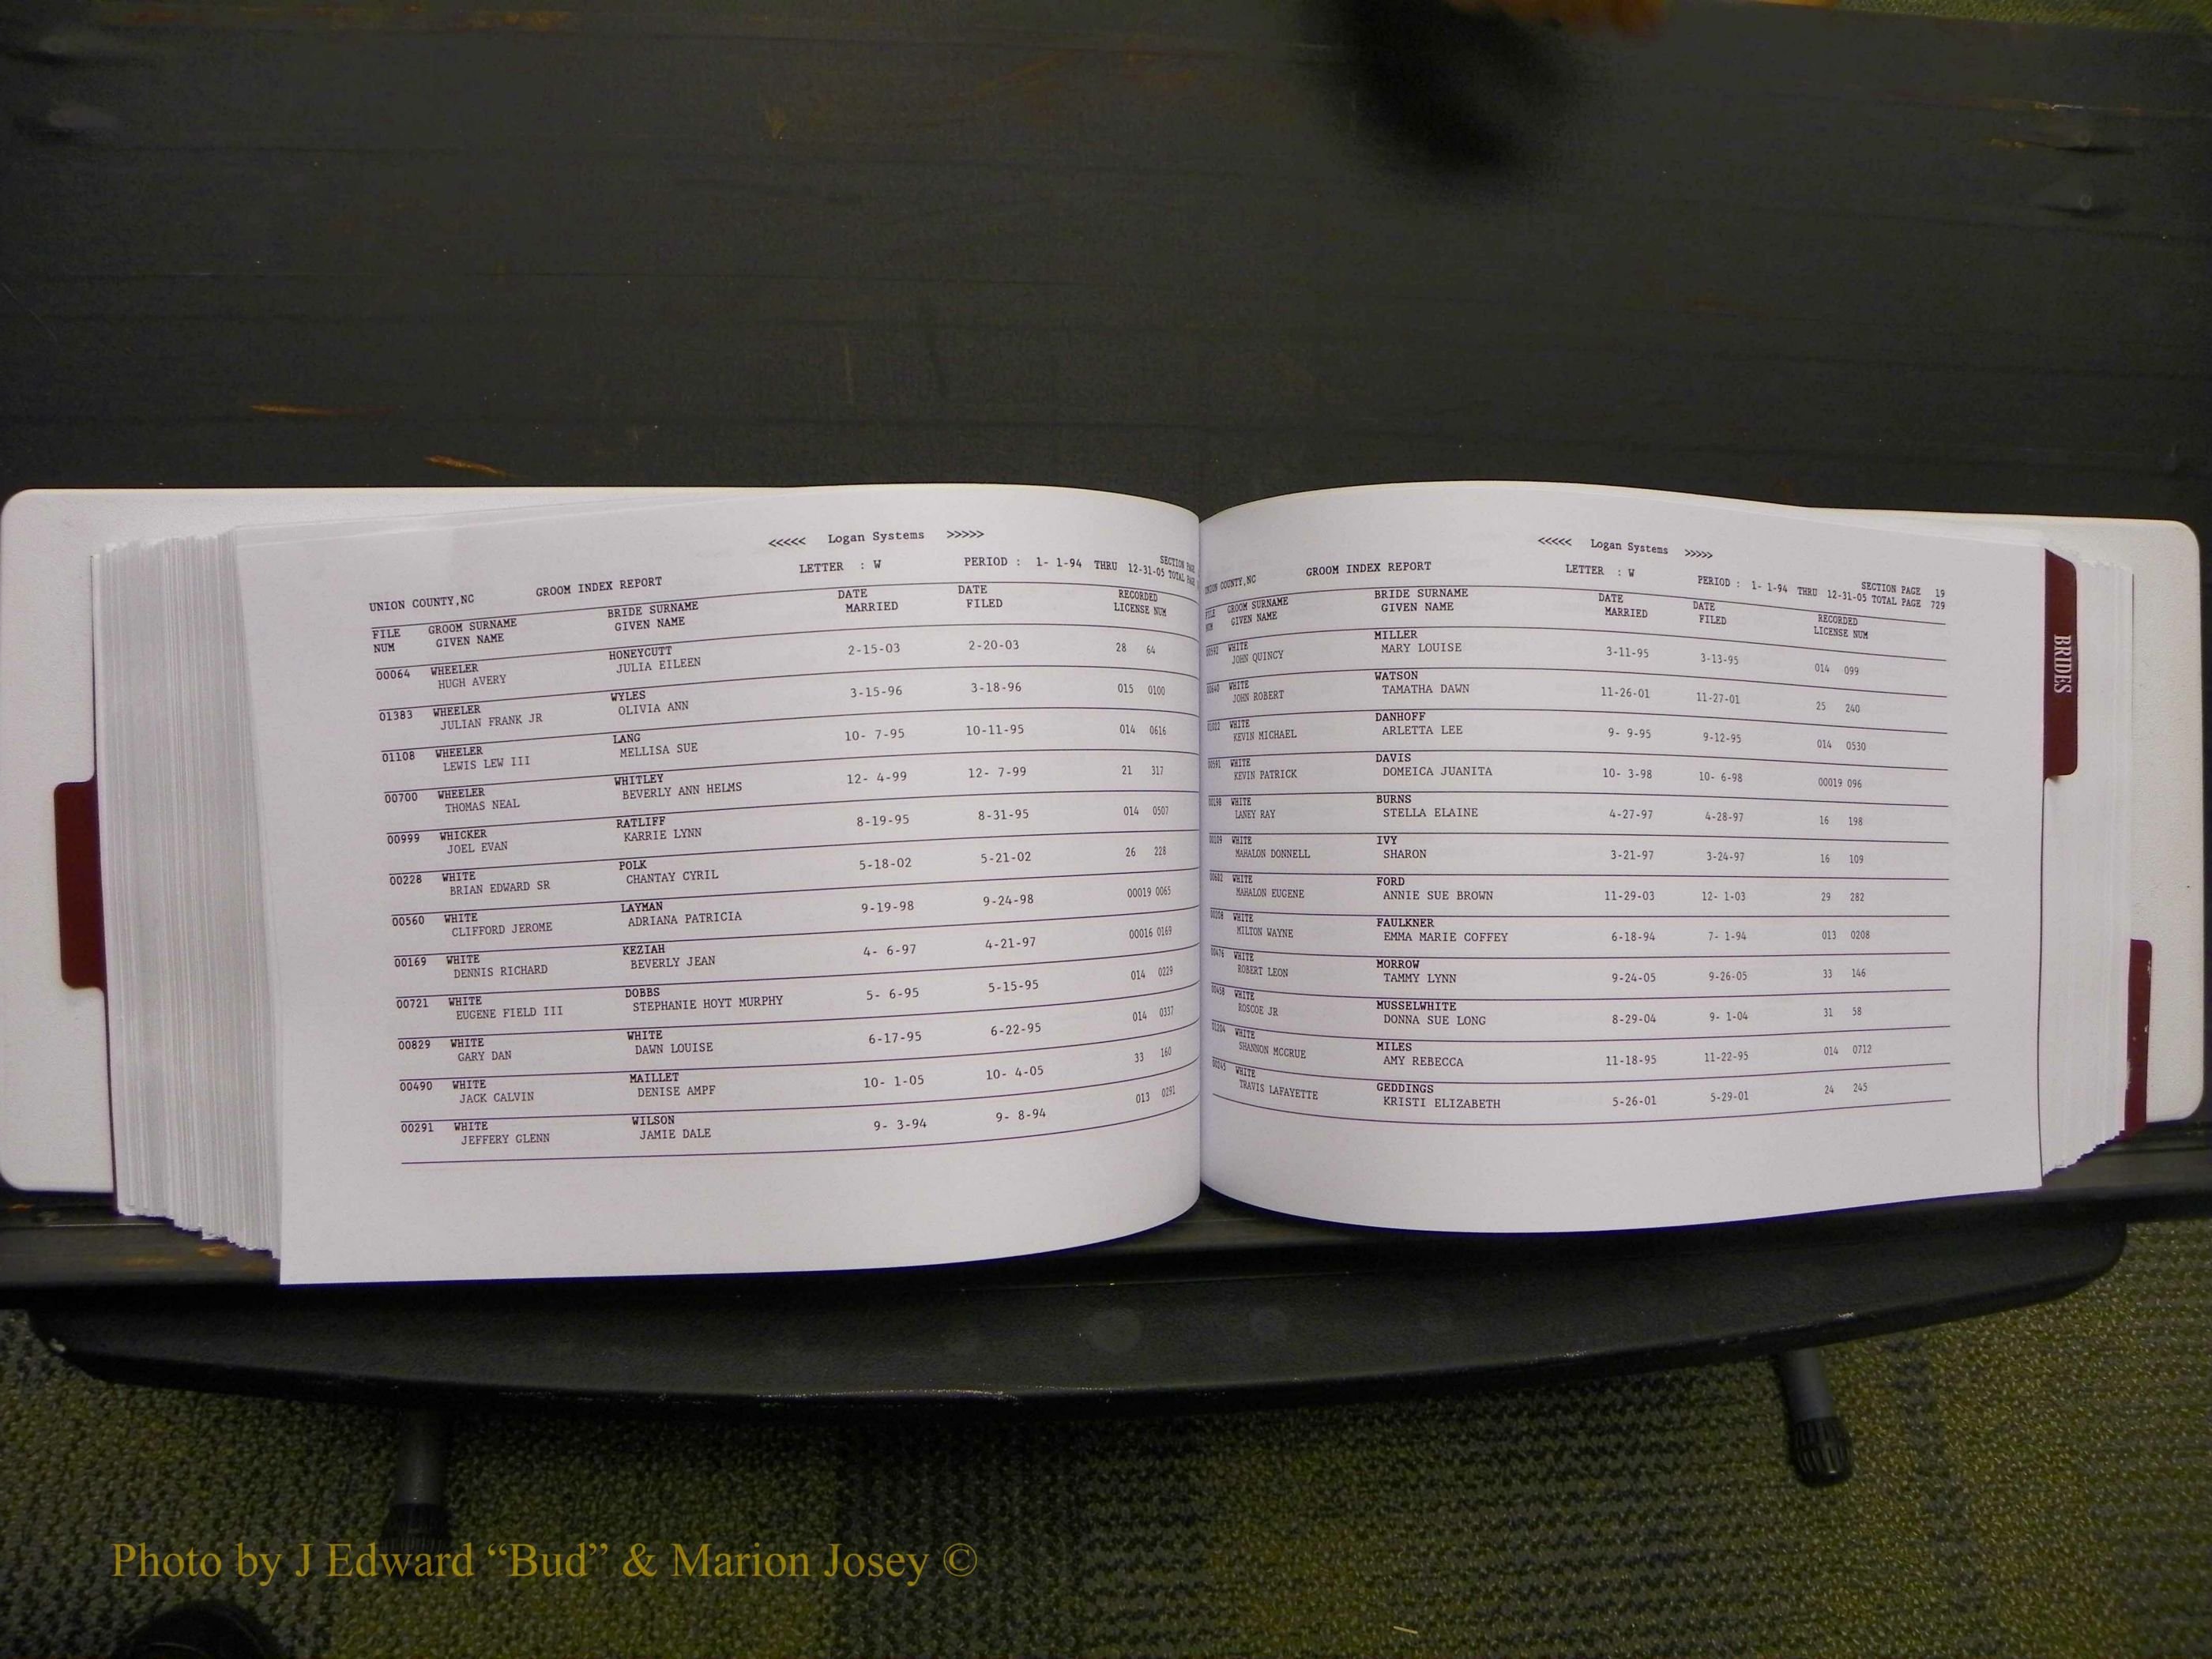 <<<<< Logan Systems >>>>>
UNION COUNTY,NC GROOM INDEX REPORT LETTER : W PERIOD : 1- 1-94 THRU 12-31-05 SECTION PAGE
TOTAL PAGE
FILE GROOM SURNAME BRIDE SURNAME DATE DATE RECORDED
NUM GIVEN NAME GIVEN NAME MARRIED FILED LICENSE NUM
00064 WHEELER HONEYCUTT 2-15-03 2-20-03 28 64
HUGH AVERY JULIA EILEEN
01383 WHEELER WYLES 3-15-96 3-18-96 015 0100
JULIAN FRANK JR OLIVIA ANN
01108 WHEELER LANG 10- 7-95 10-11-95 014 0616
LEWIS LEW III MELLISA SUE
00700 WHEELER WHITLEY 12- 4-99 12- 7-99 21 317
THOMAS NEAL BEVERLY ANN HELMS
00999 WHICKER RATLIFF 8-19-95 8-31-95 014 0507
JOEL EVAN KARRIE LYNN
00228 WHITE POLK 5-18-02 5-21-02 26 228
BRIAN EDWARD SR CHANTAY CYRIL
00560 WHITE LAYMAN 9-19-98 9-24-98 00019 0065
CLIFFORD JEROME ADRIANA PATRICIA
00169 WHITE KEZIAH 4- 6-97 4-21-97 00016 0169
DENNIS RICHARD BEVERLY JEAN
00721 WHITE DOBBS 5- 6-95 5-15-95 014 0229
EUGENE FIELD III STEPHANIE HOYT MURPHY
00829 WHITE WHITE 6-17-95 6-22-95 014 0337
GARY DAN DAWN LOUISE
00490 WHITE MAILLET 10- 1-05 10- 4-05 33 160
JACK CALVIN DENISE AMPF
00291 WHITE WILSON 9- 3-94 9- 8-94 013 0291
JEFFERY GLENN JAMIE DALE
<<<<< Logan Systems >>>>>
UNION COUNTY,NC GROOM INDEX REPORT LETTER : W PERIOD : 1- 1-94 THRU 12-31-05 SECTION PAGE 19
TOTAL PAGE 729
FILE GROOM SURNAME BRIDE SURNAME DATE DATE RECORDED
NUM GIVEN NAME GIVEN NAME MARRIED FILED LICENSE NUM
WHITE MILLER 3-11-95 3-13-95 014 099
JOHN QUINCY MARY LOUISE
WHITE WATSON 11-26-01 11-27-01 25 240
JOHN ROBERT TAMATHA DAWN
WHITE DANHOFF 9- 9-95 9-12-95 014 0530
KEVIN MICHAEL ARLETTA LEE
WHITE DAVIS 10- 3-98 10- 6-98 00019 096
KEVIN PATRICK DOMEICA JUANITA
00198 WHITE BURNS 4-27-97 4-28-97 16 198
LANEY RAY STELLA ELAINE
00109 WHITE IVY 3-21-97 3-24-97 16 109
MAHALON DONNELL SHARON
WHITE FORD 11-29-03 12- 1-03 29 282
MAHALON EUGENE ANNIE SUE BROWN
00208 WHITE FAULKNER 6-18-94 7- 1-94 013 0208
MILTON WAYNE EMMA MARIE COFFEY
00476 WHITE MORROW 9-24-05 9-26-05 33 146
ROBERT LEON TAMMY LYNN
00458 WHITE MUSSELWHITE 8-29-04 9- 1-04 31 58
ROSCOE JR DONNA SUE LONG
01204 WHITE MILES 11-18-95 11-22-95 014 0712
SHANNON MCCRUE AMY REBECCA
00245 WHITE GEDDINGS 5-26-01 5-29-01 24 245
TRAVIS LAFAYETTE KRISTI ELIZABETH
BRIDES
Photo by J Edward “Bud” & Marion Josey ©